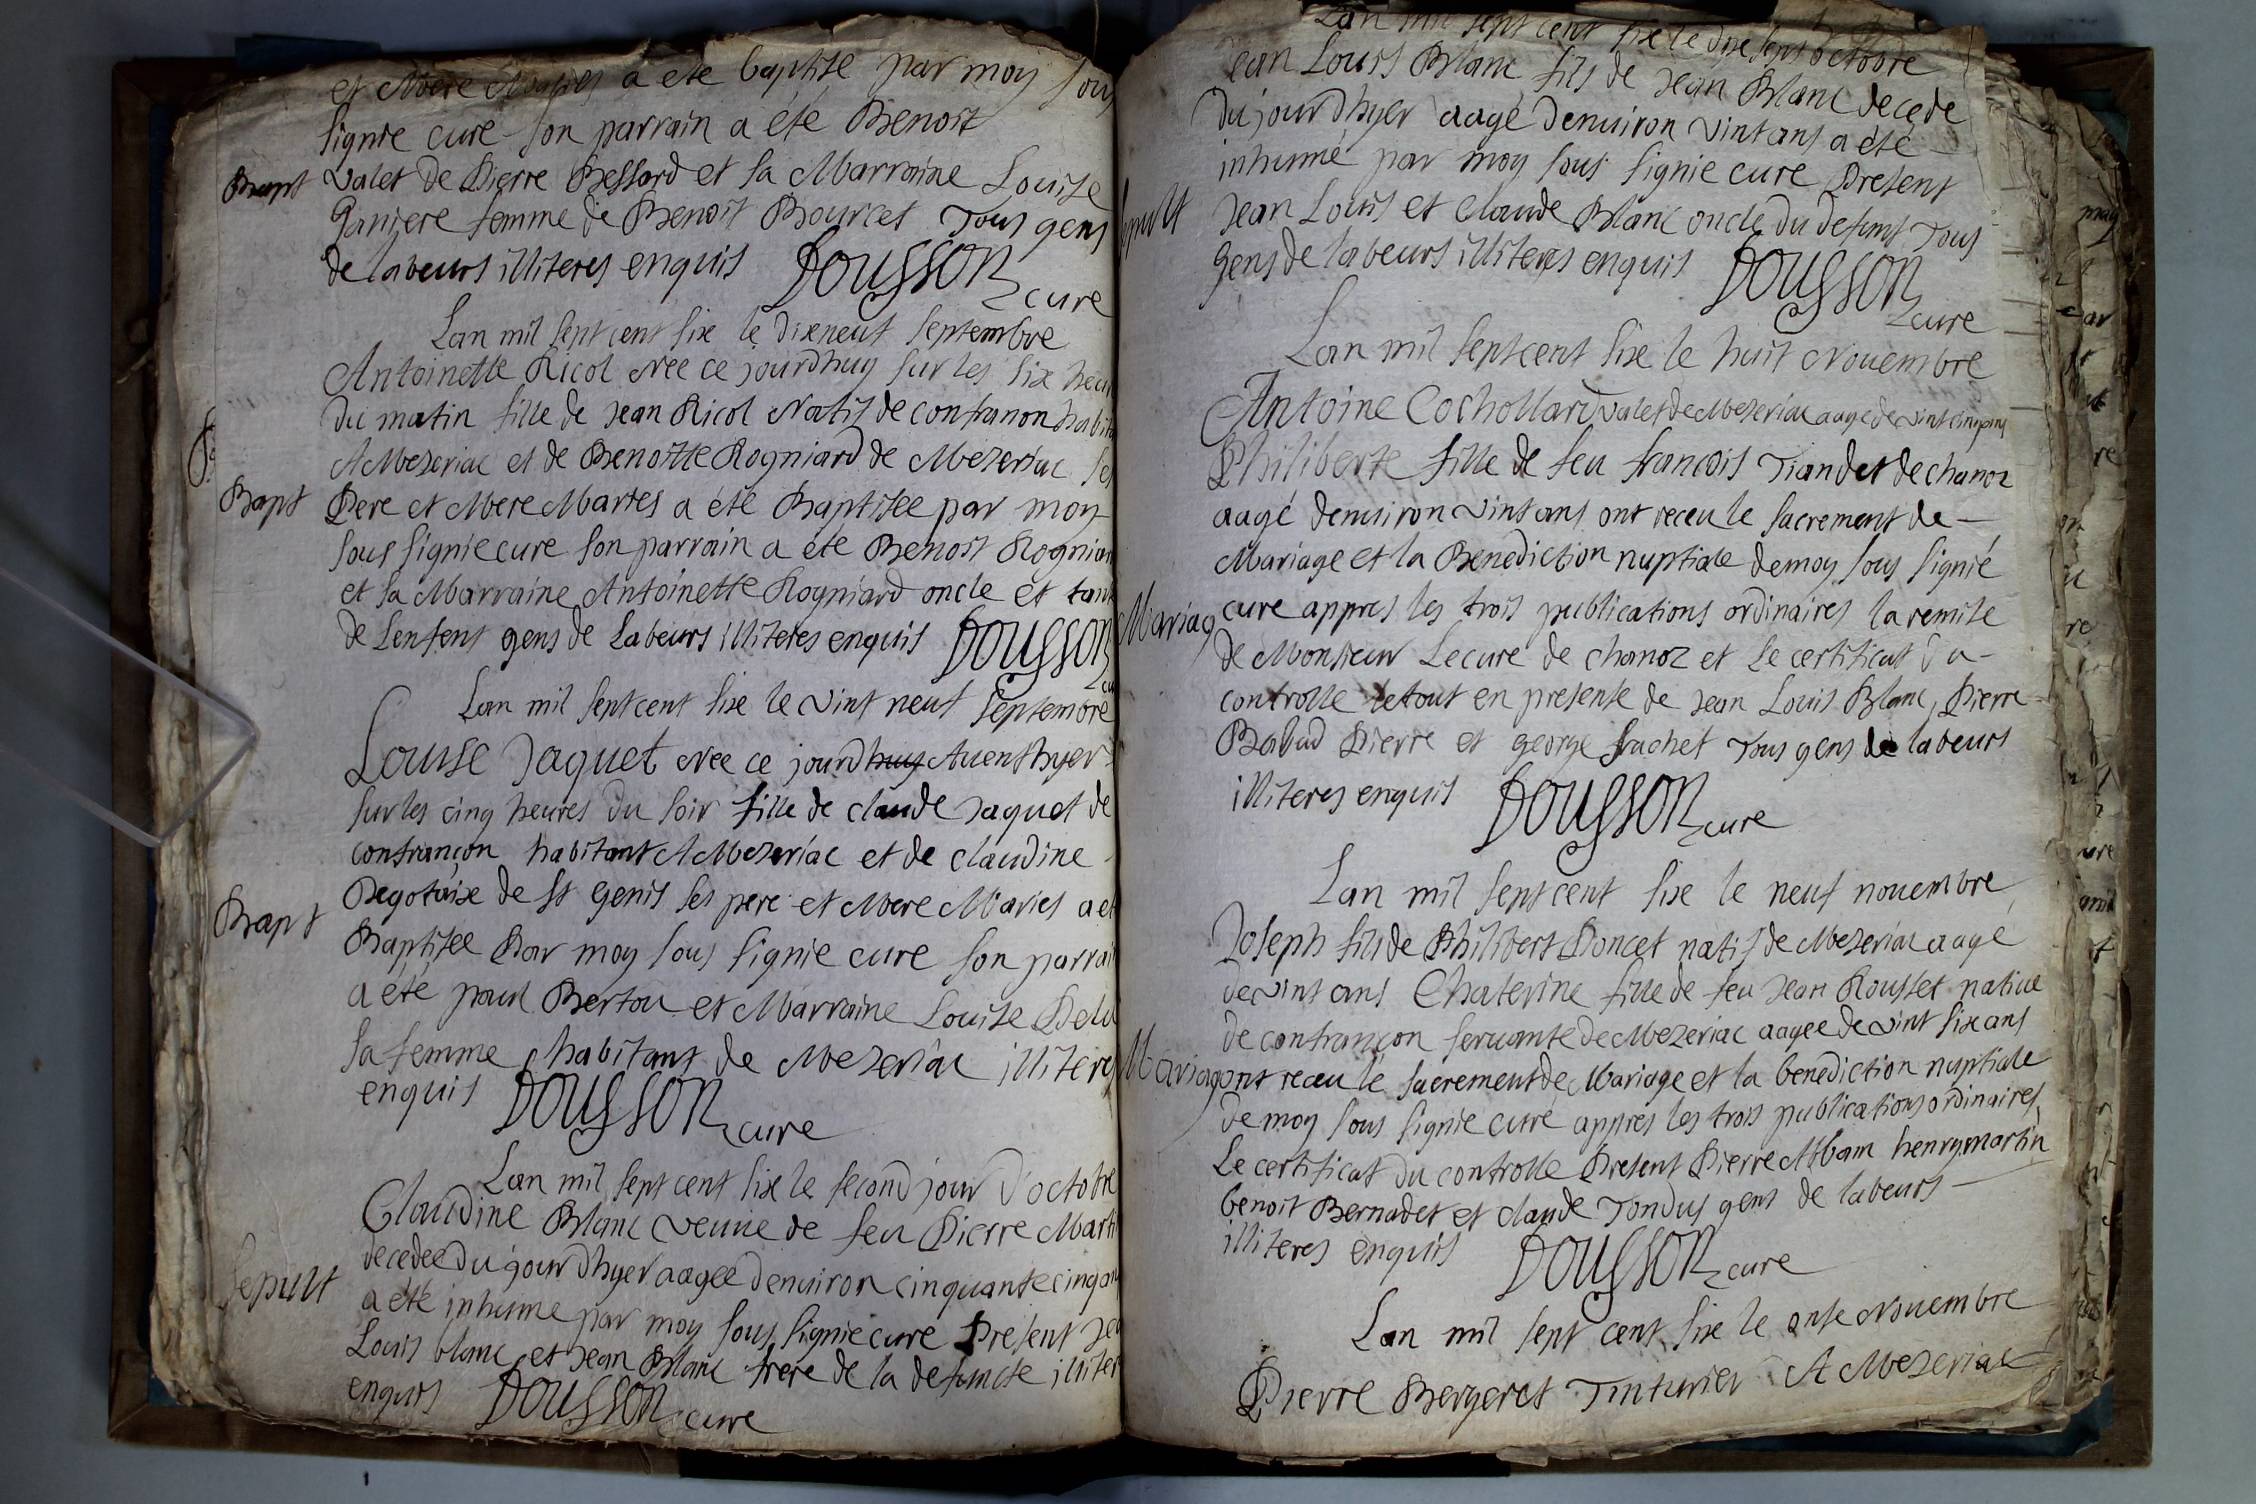 et Mere Maries a ete baptise par moy sous
signie cure son parrain a été Benoit
Bapt
valet de Pierre Bessard et sa Marraine Louise
Ganiere femme de Benoit Bourcet Tous gens
de labeurs illiteres enquis Dousson cure
Lan mil sept cent sixe le dixneuf septembre
Antoinette Ricol Nee ce jourdhuy sur les six heu
du matin fille de Jean Ricol Natif de confranon habit
A Mezeriac et de Benoitte Rogniard de Mezeriac ses
Bapt
Pere et Mere Maries a été Baptisee par moy
sous signie cure son parrain a été Benoit Rognia
et sa Marraine Antoinette Rogniard oncle et tant
de Lenfens gens de Labeurs illiteres enquis Dousson cu
Lan mil sept cent sixe le vint neuf septembre
Louise Jaquet Nee ce jourdhuy Auenthyer
sur les cinq heures du soir fille de claude Jaquet de
confrançon habitant A Mezeriac et de claudine
Degotaixe de St Genis ses pere et Mere Maries a et
Bapt
Baptisee Par moy sous signie cure son parrai
a été paul Bertou et Marraine Louise
sa femme habitant de Mezeriac illitere
enquis Dousson cure
Lan mil sept cent sixe le second jour d'octobre
Claudine Blanc veuue de feu Pierre Marti
decedee du jour dhyer aagee denuiron cinquante cinq an
Sepult
a été inhume par moy sous signie cure Present Jea
Louis blanc et Jean Blanc frere de la defuncte illiter
enquis Dousson cure
Lan mil sept cent sixe le dixsept octobre
Jean Louis Blanc fils de Jean Blanc decede
du jour dhyer aagé denuiron vint ans a été
inhumé par moy sous signie cure Present
Sepult
Jean Louis et Claude Blanc oncle du defunt Tous
gens de labeurs illiteres enquis Dousson cure
Lan mil sept cent sixe le huit Nouembre
Antoine Cochollard valet de Mezeriac aagé de vint cinq ans
Philiberte fille de feu francois Tiandet de chanoz
aagé denuiron vint ans ont receu le sacrement de
Mariage et la Benediction nuptiale de moy sous signié
Mariag
cure appres les trois publications ordinaires la remise
de Monsieur Le cure de chanoz et Le certificat du
controlle le tout en presente de Jean Louis Blanc, Pierre
Babad Pierre et george frachet Tous gens de labeurs
illiteres enquis Dousson cure
Lan mil sept cent sixe le neuf nouembre
Joseph fils de Philibert Poncet natif de Mezeriac aagé
de vint ans Chaterine fille de feu Jean Rousset natiue
de confrançon seruante de Mezeriac aagee de vint sixe ans
Mariag
ont receu le sacrement de Mariage et la benediction nuptiale
de moy sous signie curé appres les trois publications ordinaires
Le certificat du controlle Present Pierre Mbam henry martin
benoit Bernadet et claude Tondus gens de labeurs
illiteres enquis Dousson cure
Lan mil sept cent sixe le onse Nouembre
Pierre Bergeret Tinturier A Mezeriac